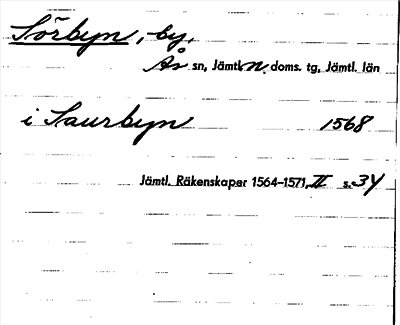 Sörbyn, by,
Ås sn, Jämtl. n. doms. tg, Jämtl. län
i Saurbyn 1568
Jämtl. Räkenskaper 1564-1571, II s. 34